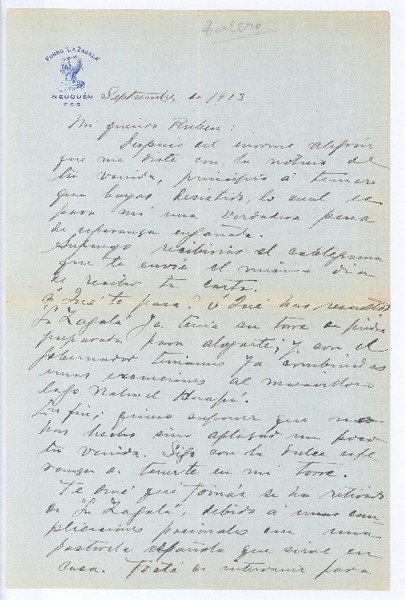 Talero
FUNDO "LA ZAGALA"
NEUQUÉN
F.C.S.
Septiembre de 1913
Mi querido Ruben:
Después del enorme alegrón
que me diste con la noticia de
tu venida, principio á temer
que hayas desistido, lo cual es
para mí una verdadera pena
de esperanza engañada.
Supongo recibirías el cablegrama
que te envié el mismo día
de recibir tu carta.
¿Qué te pasa? ó Qué has resuelto?
La Zagala ya tenía su torre de piedra
preparada para alojarte; y con el
Gobernador teníamos ya combinadas
unas excursiones al maravilloso
lago Nahuel Huapí.
En fin; quiero suponer que no
has hecho sino aplazar un poco
tu venida. Sigo con la dulce espe
ranza de tenerte en mi torre.
Te diré que Tomás se ha retirado
de "La Zagala", debido á unas com-
plicaciones pasionales con una
pastorela española que sirve en
casa. Traté de intervenir para